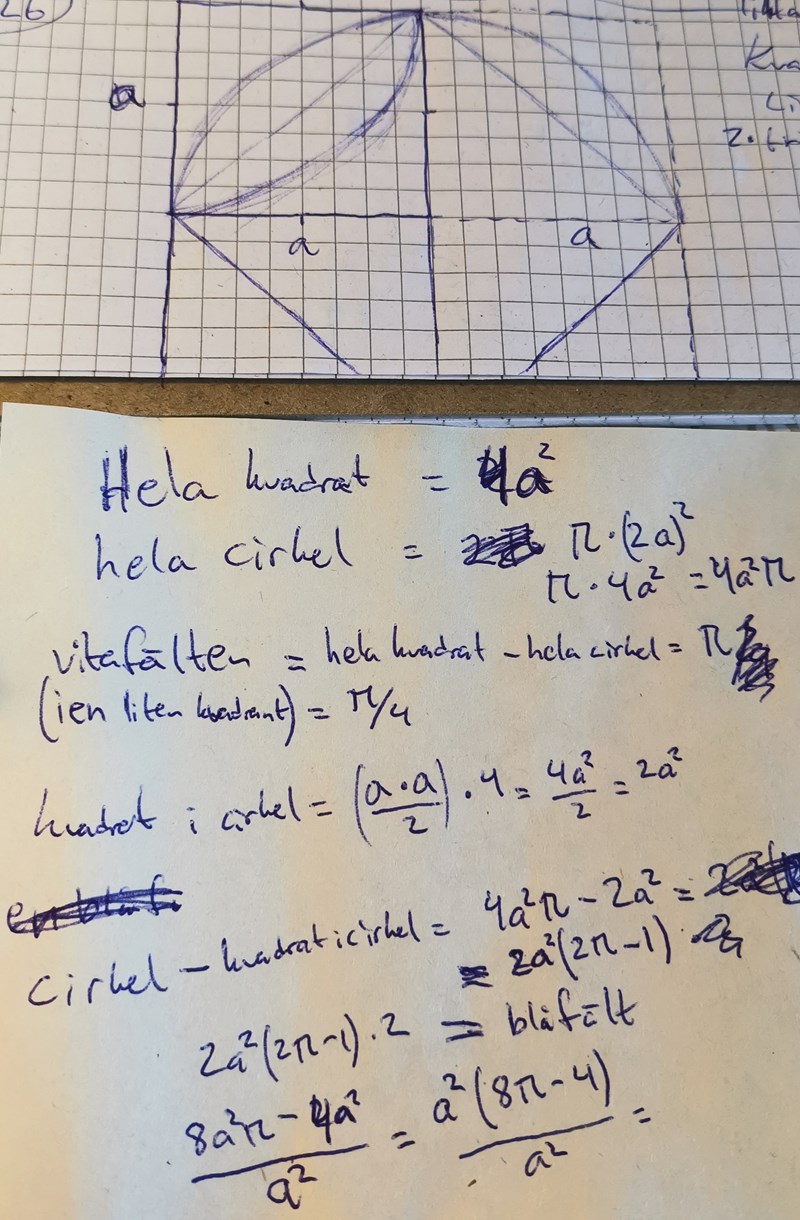 26
a
a
a
Kva
Hela kvadrat = 4a²
hela cirkel = π·(2a)²
π·4a² = 4a²π
vitafälten = hela kvadrat - hela cirkel = π
(i en liten kvadrant) = π/4
kvadrat i cirkel = (a·a/2)·4 = 4a²/2 = 2a²
cirkel - kvadrat i cirkel = 4a²π - 2a² =
= 2a²(2π-1)
2a²(2π-1)·2 = blåfält
8a²π - 4a²/a² = a²(8π-4)/a² =